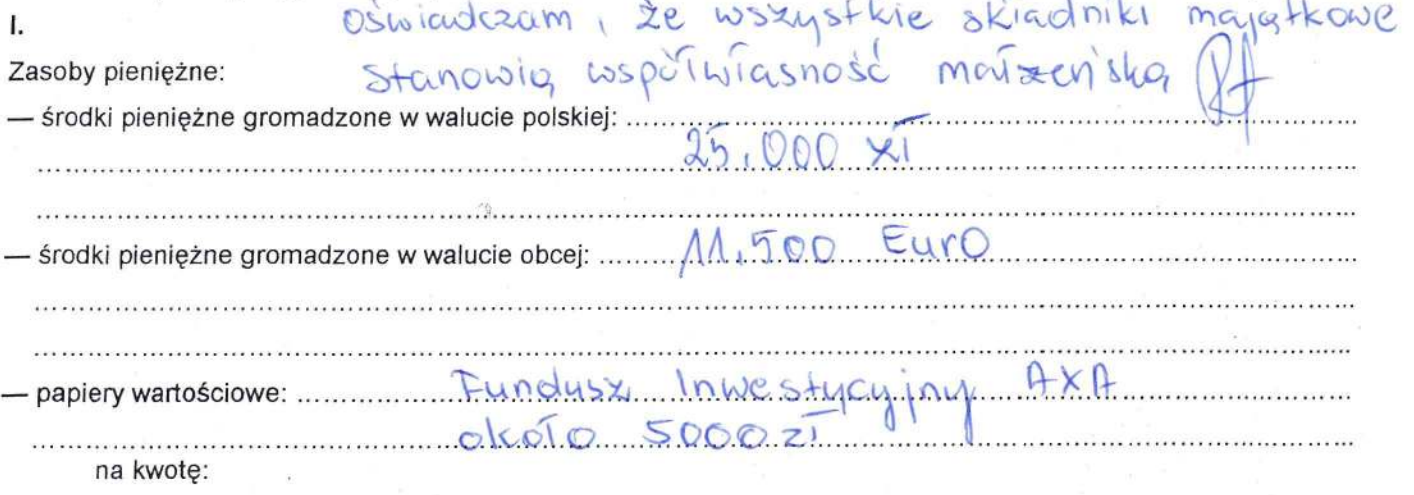 I.
oświadczam, że wszystkie składniki majątkowe
Zasoby pieniężne: stanowią współwłasność małżeńską
— środki pieniężne gromadzone w walucie polskiej: ........................
25.000 zł
— środki pieniężne gromadzone w walucie obcej: ......... 11.500 Euro
— papiery wartościowe: .................. Fundusz Inwestycyjny AXA
około 5000 zł
na kwotę: